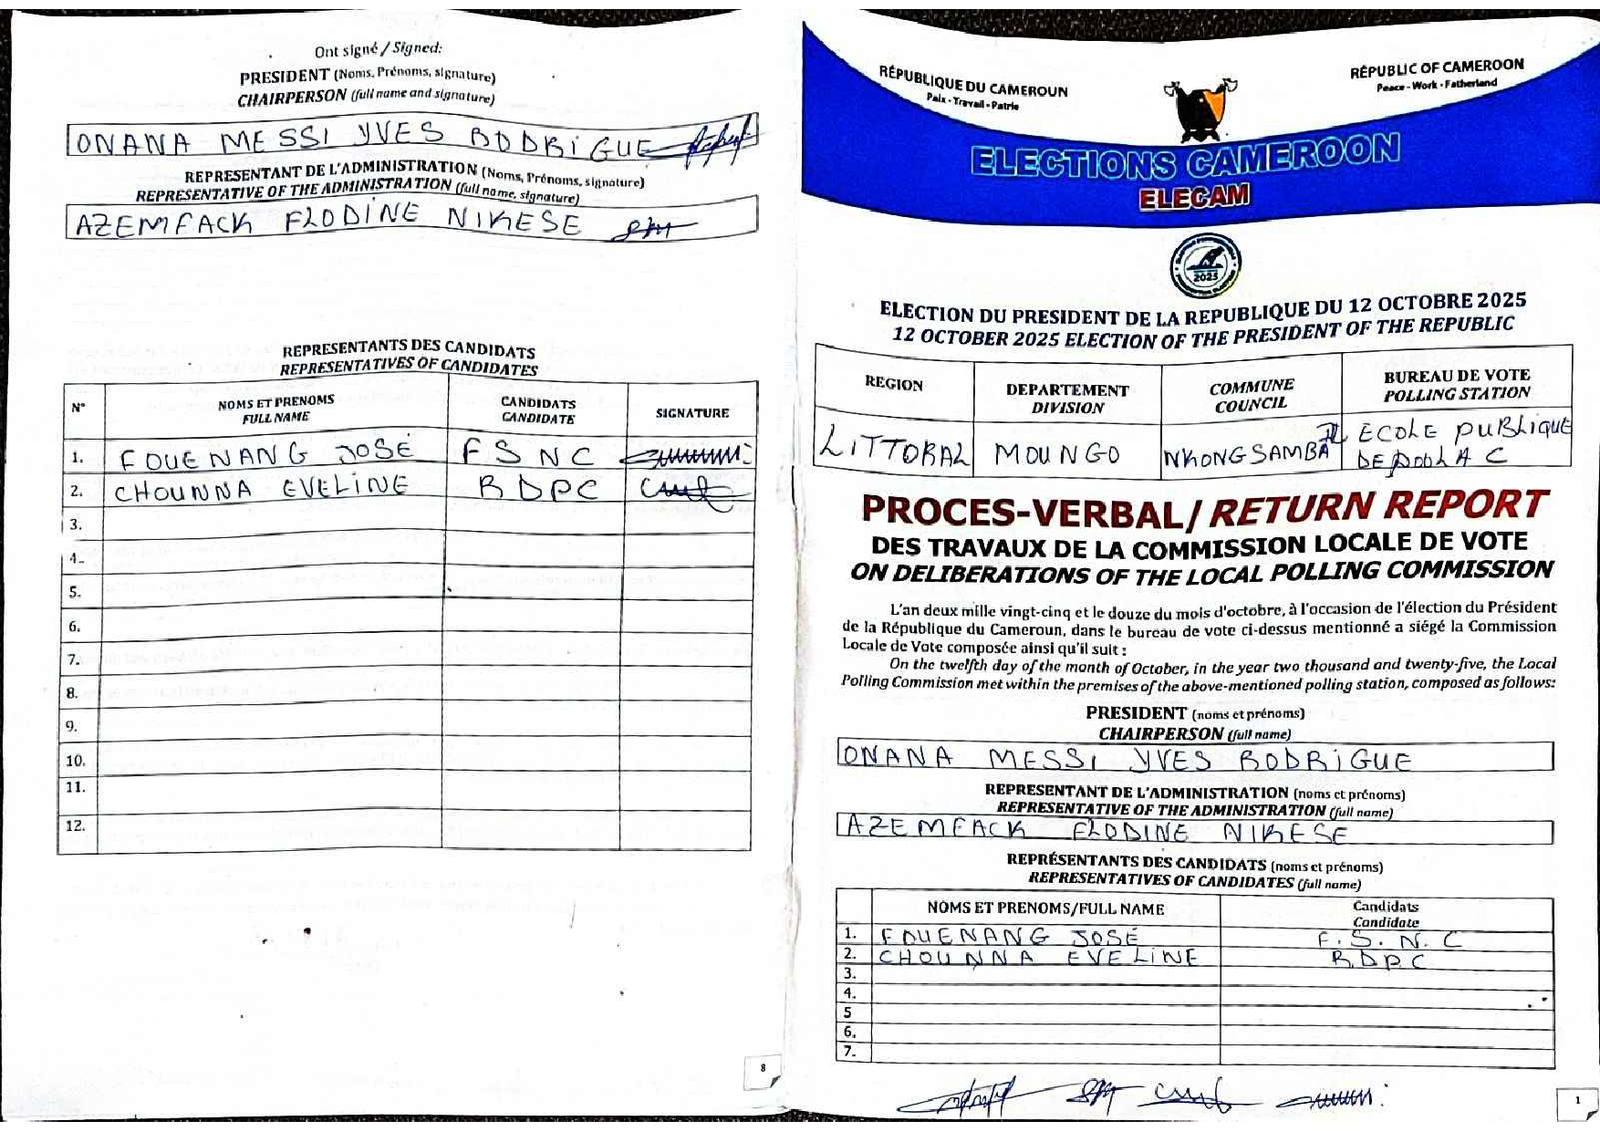 Ont signé / Signed:
PRESIDENT (Noms, Prénoms, signature)
CHAIRPERSON (full name and signature)
ONANA MESSI YVES RODRIGUE
REPRESENTANT DE L'ADMINISTRATION (Noms, Prénoms, signature)
REPRESENTATIVE OF THE ADMINISTRATION (full name, signature)
AZEMFACK FLODINE NIKESE
REPRESENTANTS DES CANDIDATS
REPRESENTATIVES OF CANDIDATES
N° NOMS ET PRENOMS FULL NAME CANDIDATS CANDIDATE SIGNATURE
1. FOUENANG JOSÉ FSNC
2. CHOUNNA EVELINE RDPC
3.
4.
5.
6.
7.
8.
9.
10.
11.
12.
8
RÉPUBLIQUE DU CAMEROUN
Paix - Travail - Patrie
RÉPUBLIC OF CAMEROON
Peace - Work - Fatherland
ELECTIONS CAMEROON
ELECAM
2025
ELECTION DU PRESIDENT DE LA REPUBLIQUE DU 12 OCTOBRE 2025
12 OCTOBER 2025 ELECTION OF THE PRESIDENT OF THE REPUBLIC
REGION DEPARTEMENT DIVISION COMMUNE COUNCIL BUREAU DE VOTE POLLING STATION
LITTORAL MOUNGO NKONGSAMBA ECOLE PUBLIQUE
C
PROCES-VERBAL/RETURN REPORT
DES TRAVAUX DE LA COMMISSION LOCALE DE VOTE
ON DELIBERATIONS OF THE LOCAL POLLING COMMISSION
L'an deux mille vingt-cinq et le douze du mois d'octobre, à l'occasion de l'élection du Président
de la République du Cameroun, dans le bureau de vote ci-dessus mentionné a siégé la Commission
Locale de Vote composée ainsi qu'il suit :
On the twelfth day of the month of October, in the year two thousand and twenty-five, the Local
Polling Commission met within the premises of the above-mentioned polling station, composed as follows:
PRESIDENT (noms et prénoms)
CHAIRPERSON (full name)
ONANA MESSI YVES RODRIGUE
REPRESENTANT DE L'ADMINISTRATION (noms et prénoms)
REPRESENTATIVE OF THE ADMINISTRATION (full name)
AZEMFACK FLODINE NIKESE
REPRÉSENTANTS DES CANDIDATS (noms et prénoms)
REPRESENTATIVES OF CANDIDATES (full name)
NOMS ET PRENOMS/FULL NAME Candidats Candidate
1. FOUENANG JOSÉ F.S.N.C
2. CHOUNNA EVELINE RDPC
3.
4.
5
6.
7.
1